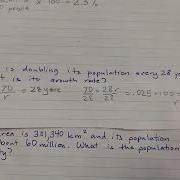 x 100 = 2.5
people
is doubling its population every 28 ye
t is its growth rate?
70/r = 28 years 70/28 = 28r/28 = .025
area is 301,340 km² and its population
about 60 million. What is the population
ty?